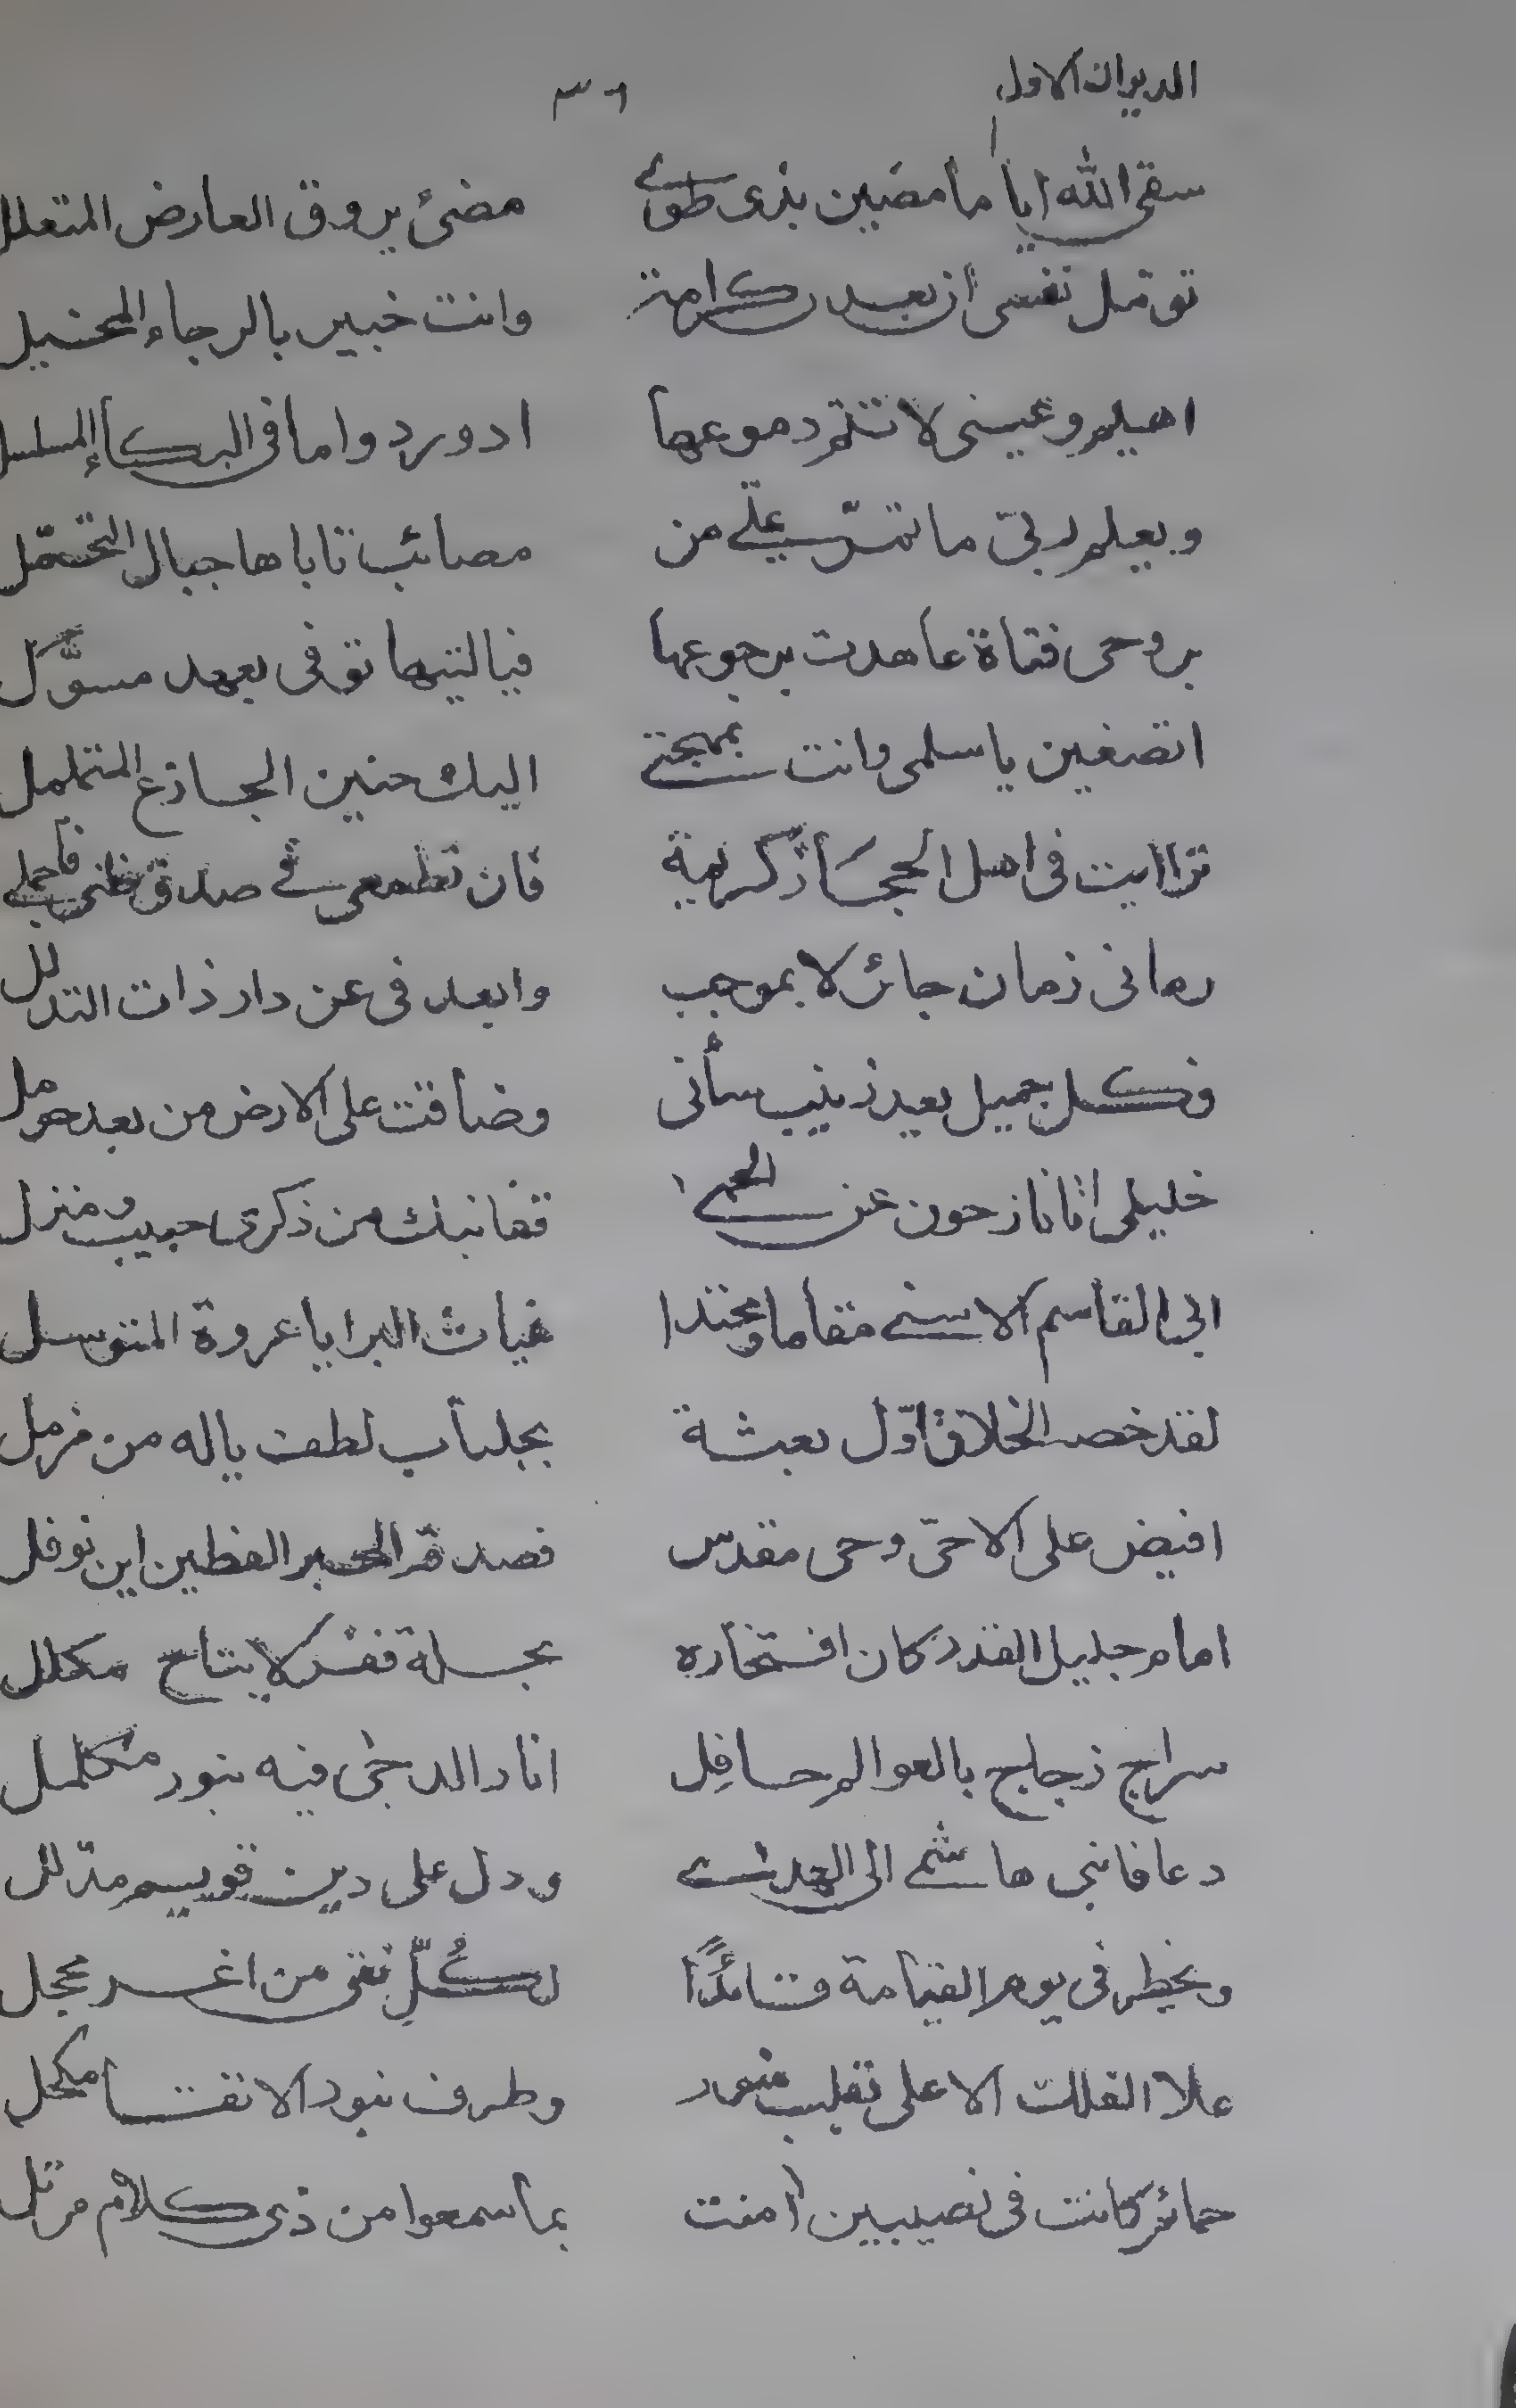 الديوان الاول ٣٦
سقى الله اياما مضين بذى طوى مضئ بروق العارض المتعلل
تؤمل نفسى ان بعد كرامة وانت خبير بالرجاء المخيل
اهيم وعينى لا تنم دموعها ادور دواما فى البكاء المسلسل
ويعلم ربى ما تمر على من مصائب تاباها جبال التحمل
بروحى فتاة عاهدت برجوعها فياليتها توفى بعهد مسؤل
اتصغين يا سلمى وانت بمهجتى اليك حنين الجازع المتململ
تراايت فى اهل الحجاز كريمة فان تطمعى فى صدق ظنى فاجملى
رمانى زمان جائر لا بموجب وابعدنى عن دار ذات التدلل
فكل جميل بعد زينب سأنى وضاقت على الارض من بعد حومل
خليلى انا نازحون عن الحمى قفا نبك من ذكرى حبيب ومنزل
ابى القاسم الاسنى مقاما ومحتدا غياث البرايا عروة المتوسل
لقد خصه الخلاق اول بعثة بجلباب لطف ياله من مزمل
افيض على الامى وحى مقدس فصدقه الحبر الفطين ابن نوفل
امام جليل القدر كان افتخاره بحلة فقر لا بتاج مكلل
سراج زجاج بالعوالم حافل انار الدجى فيه بنور مكلمل
دعا فانبى هاشمى الى الهدى ودل على دين قويم مدلل
ويخطر فى يوم القيامة قائدا لكل تقى من اغر محجل
علا الفلك الاعلى بقلب منور وطرف بنور الاتقا مكحل
حمائر كانت فى نصيبين امنت بما سمعوا من ذى كلام مرتل